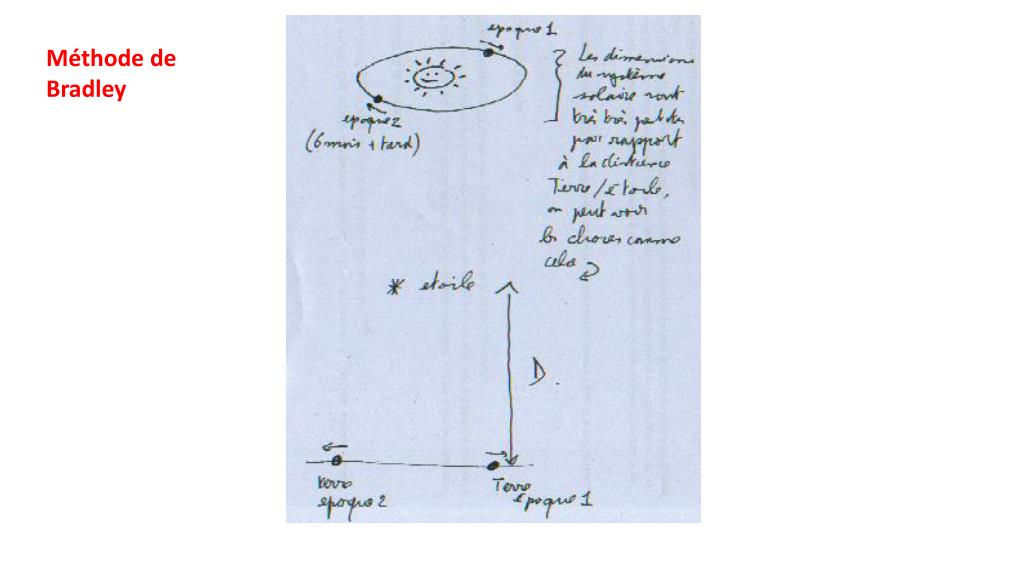 Méthode de
Bradley
epoque 1
epoque 2
(6 mois + tard)
Les dimensions
du système
solaire sont
très très petites
par rapport
à la distance
Terre/étoile,
on peut voir
les choses comme
cela
* etoile
D.
terre
epoque 2
Terre
epoque 1